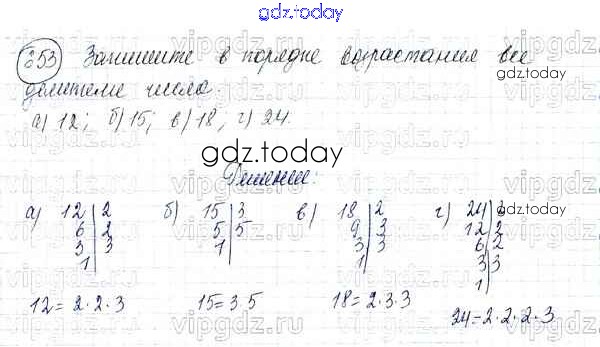 gdz.today
653 Запишите в порядке возрастания все
gdz.today
делители числа.
а) 12; б) 15; в) 18; г) 24.
gdz.today
Решение:
а) 12 | 2 б) 15 | 3 в) 18 | 2 г) 24 | 2
6 | 2 5 | 5 9 | 3 12 | 2
3 | 3 1 | 3 | 3 6 | 2
1 | 1 | 3 | 3
1 |
12 = 2·2·3 15 = 3·5 18 = 2·3·3 24 = 2·2·2·3